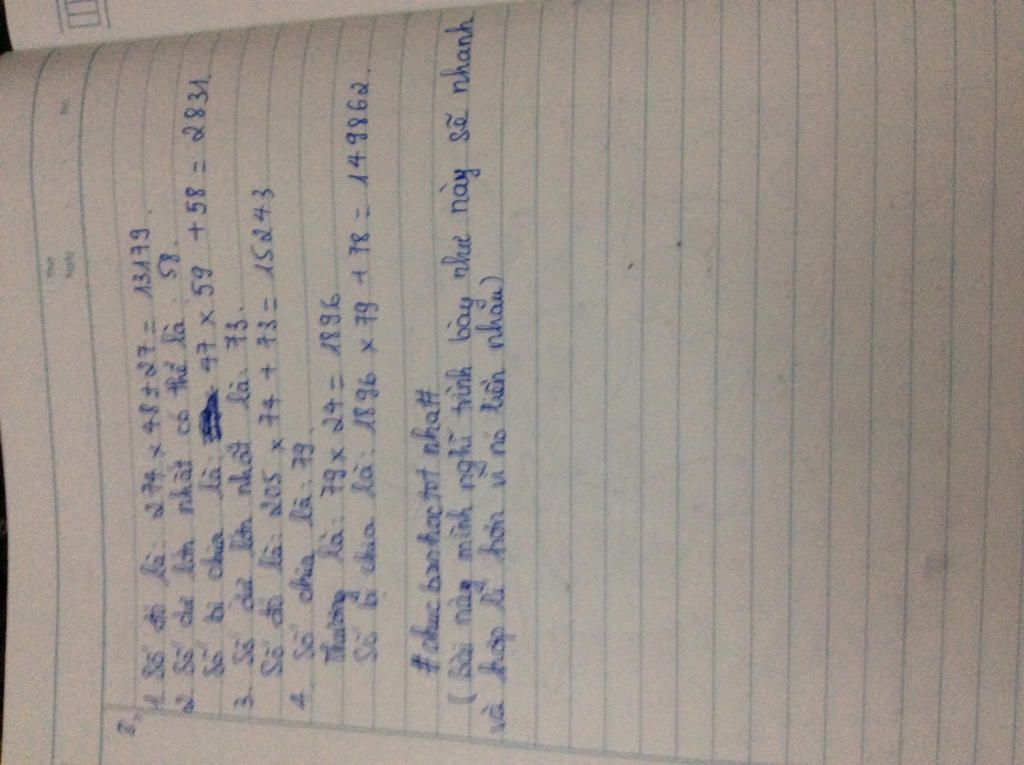 8,
1. Số đó là: 274 × 48 + 27 = 13179.
2. Số dư lớn nhất có thể là: 58.
Số bị chia là: 47 × 59 + 58 = 2831.
3. Số dư lớn nhất là: 73.
Số đó là: 205 × 74 + 73 = 15243
4. Số chia là: 79.
Thương là: 79 × 24 = 1896
Số bị chia là: 1896 × 79 + 78 = 149862.
#chucbanhoctot nha#
(Bài này mình nghĩ trình bày như này sẽ nhanh
và hợp lí hơn vì nó liền nhau)